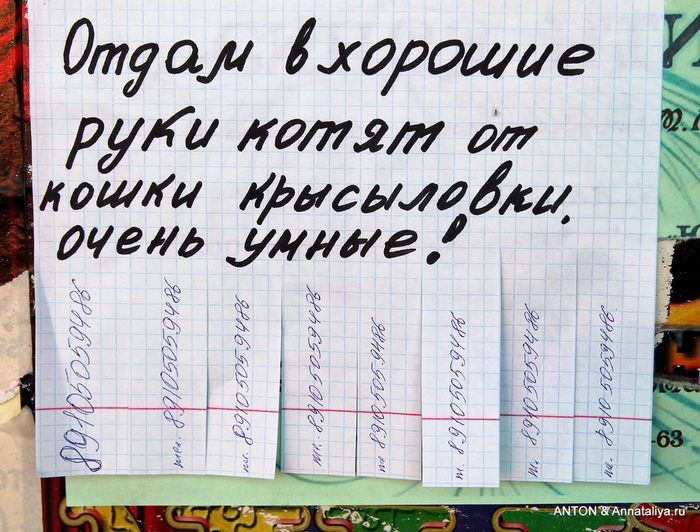 Отдам в хорошие
руки котят от
кошки крысыловки.
очень умные!
89105059486
тел. 89105059486
тел. 89105059486
тел. 89105059486
тел 89105059486
т. 89105059486
т. 89105059486
тел. 89105059486
-63
ANTON & Annataliya.ru